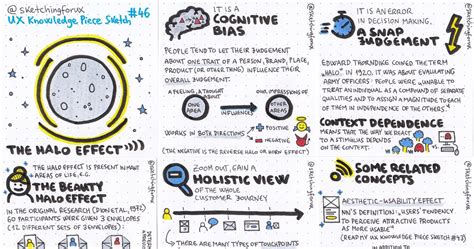 @sketchingforux
UX Knowledge Piece Sketch
#46
THE HALO EFFECT
IT IS A
COGNITIVE
BIAS
PEOPLE TEND TO LET THEIR JUDGEMENT
ABOUT ONE TRAIT OF A PERSON, BRAND, PLACE,
PRODUCT (OR OTHER THING) INFLUENCE THEIR
OVERALL JUDGEMENT.
A FEELING, A THOUGHT
ABOUT
ONE AREA
INFLUENCES
OUR IMPRESSIONS OF
OTHER AREAS
WORKS IN BOTH DIRECTIONS
POSITIVE
NEGATIVE
(THE NEGATIVE IS THE REVERSE HALO OR HORN EFFECT)
IT IS AN ERROR
IN DECISION MAKING,
A SNAP
JUDGEMENT
EDWARD THORNDIKE COINED THE TERM
„HALO” IN 1920. IT WAS ABOUT EVALUATING
ARMY OFFICERS: PEOPLE WERE „UNABLE TO
TREAT AN INDIVIDUAL AS A COMPOUND OF SEPARATE
QUALITIES AND TO ASSIGN A MAGNITUDE TO EACH
OF THEM IN INDEPENDENCE OF THE OTHERS.”
CONTEXT DEPENDENCE
MEANS THAT THE WAY WE REACT
TO A STIMULUS DEPENDS
ON THE CONTEXT.
THE HALO EFFECT IS PRESENT IN MANY
AREAS OF LIFE, E.G.
THE BEAUTY
HALO EFFECT
IN THE ORIGINAL RESEARCH (DION ET AL, 1972)
60 PARTICIPANTS WERE GIVEN 3 ENVELOPES
(12 DIFFERENT SETS OF 3 ENVELOPES):
ZOOM OUT, GAIN A
HOLISTIC VIEW
OF THE WHOLE
CUSTOMER JOURNEY
THERE ARE MANY TYPES OF TOUCHPOINTS
SOME RELATED
CONCEPTS
AESTHETIC-USABILITY EFFECT
NN'S DEFINITION: „USERS TENDENCY
TO PERCEIVE ATTRACTIVE PRODUCTS
AS MORE USABLE”
(READ MY UX KNOWLEDGE PIECE SKETCH #43)